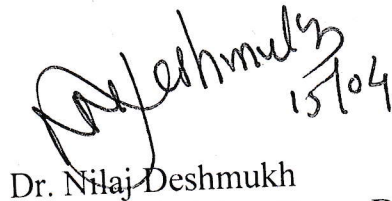 Deshmukh
15/04
Dr. Nilaj Deshmukh